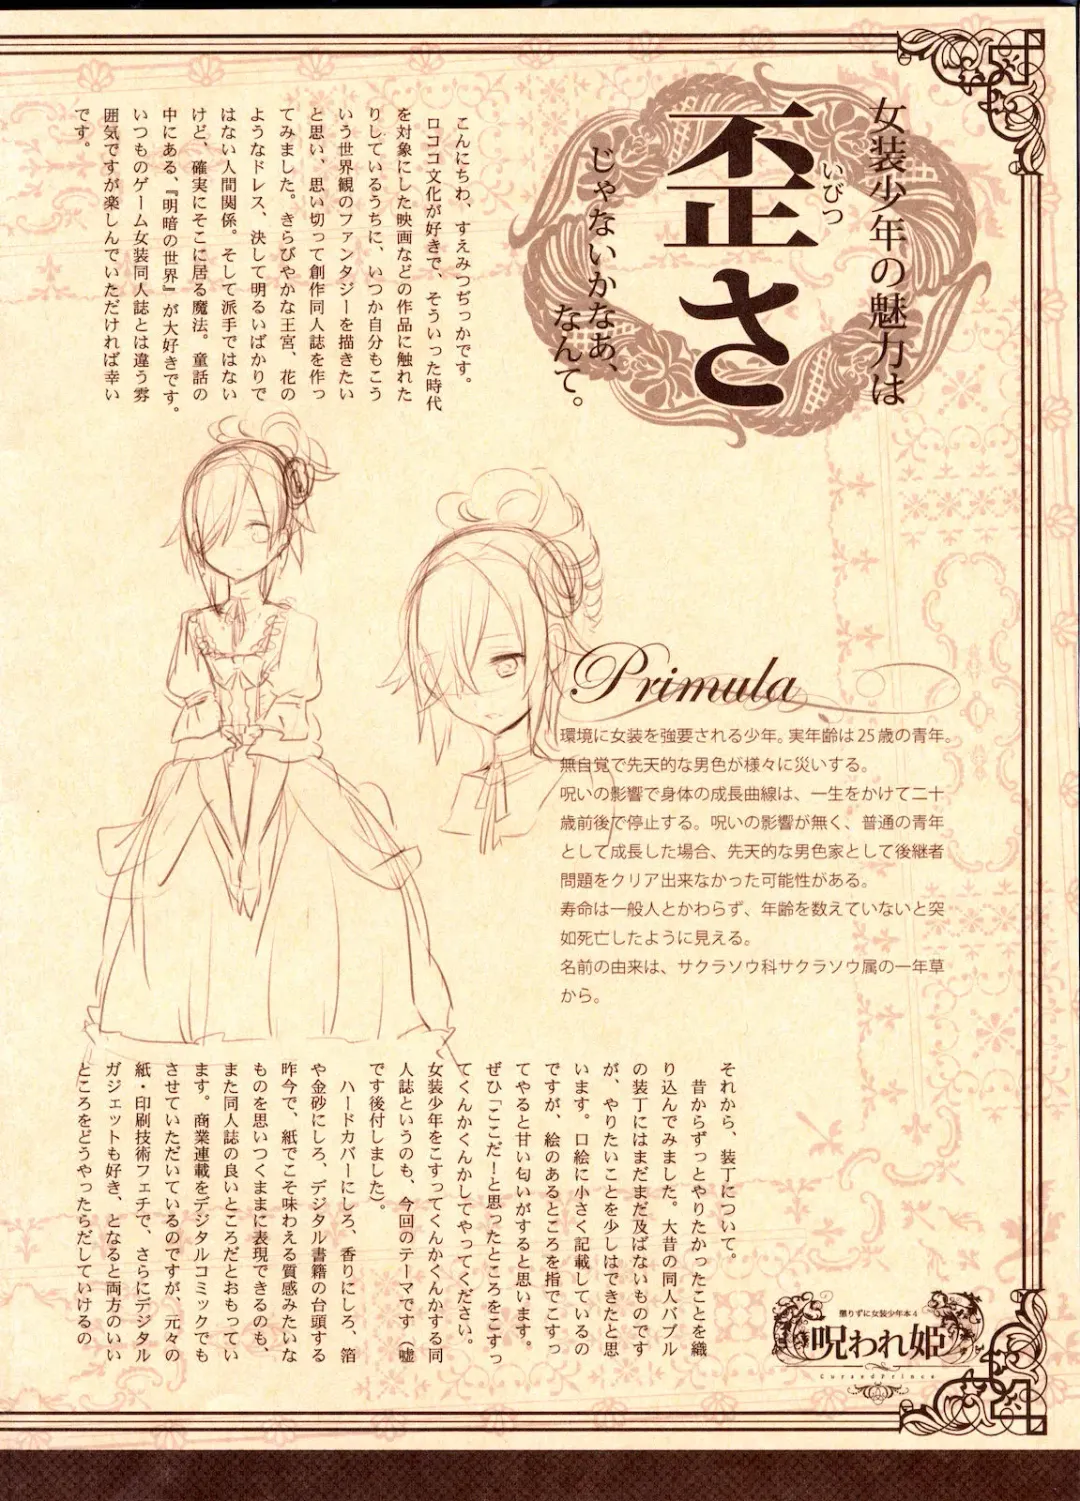 女装少年の魅力は
歪さ
いびつ
じゃないかなあ、
なんて。
こんにちわ、すえみつぢっかです。
ロココ文化が好きで、そういった時代
を対象にした映画などの作品に触れた
りしているうちに、いつか自分もこう
いう世界観のファンタジーを描きたい
と思い、思い切って創作同人誌を作っ
てみました。きらびやかな王宮、花の
ようなドレス、決して明るいばかりで
はない人間関係。そして派手ではない
けど、確実にそこに居る魔法。童話の
中にある、『明暗の世界』が大好きです。
いつものゲーム女装同人誌とは違う雰
囲気ですが楽しんでいただければ幸い
です。
Primula
環境に女装を強要される少年。実年齢は25歳の青年。
無自覚で先天的な男色が様々に災いする。
呪いの影響で身体の成長曲線は、一生をかけて二十
歳前後で停止する。呪いの影響が無く、普通の青年
として成長した場合、先天的な男色家として後継者
問題をクリア出来なかった可能性がある。
寿命は一般人とかわらず、年齢を数えていないと突
如死亡したように見える。
名前の由来は、サクラソウ科サクラソウ属の一年草
から。
それから、装丁について。
昔からずっとやりたかったことを織
り込んでみました。大昔の同人バブル
の装丁にはまだまだ及ばないものです
が、やりたいことを少しはできたと思
います。口絵に小さく記載しているの
ですが、絵のあるところを指でこすっ
てやると甘い匂いがすると思います。
ぜひ「ここだ!と思ったところをこすっ
てくんかくんかしてやってください。
女装少年をこすってくんかくんかする同
人誌というのも、今回のテーマです(嘘
です後付しました)。
ハードカバーにしろ、香りにしろ、箔
や金砂にしろ、デジタル書籍の台頭する
昨今で、紙でこそ味わえる質感みたいな
ものを思いつくままに表現できるのも、
また同人誌の良いところだとおもってい
ます。商業連載をデジタルコミックでも
させていただいているのですが、元々の
紙・印刷技術フェチで、さらにデジタル
ガジェットも好き、となると両方のいい
ところをどうやったらだしていけるの
懲りずに女装少年本4
呪われ姫
CursedPrince